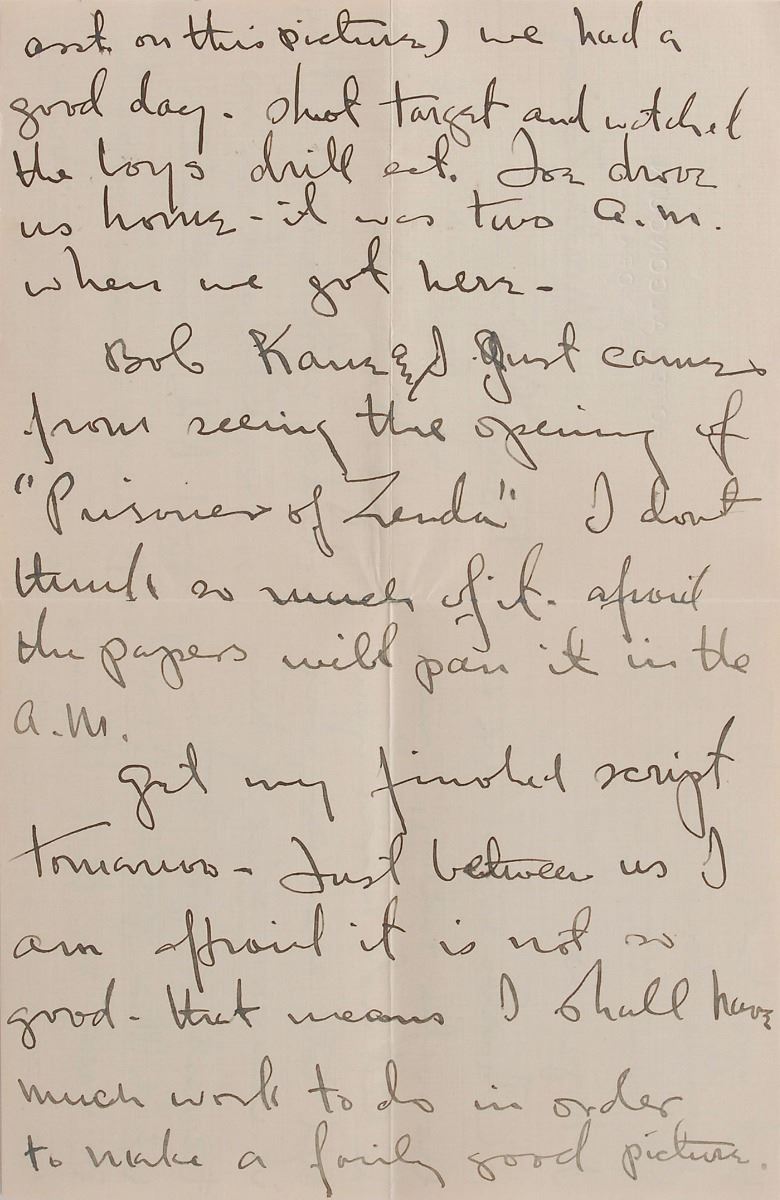 asst. on this picture) we had a
good day. Shot target and watched
the boys drill ect. Joe drove
us home - it was two a.m.
when we got here -
Bob Kane & I just came
from seeing the opening of
"Prisoner of Zenda" I dont
think so much of it. afraid
the papers will pan it in the
a.m.
get my finished script
tomorrow - Just between us I
am affraid it is not so
good - that means I shall have
much work to do in order
to make a fairly good picture.